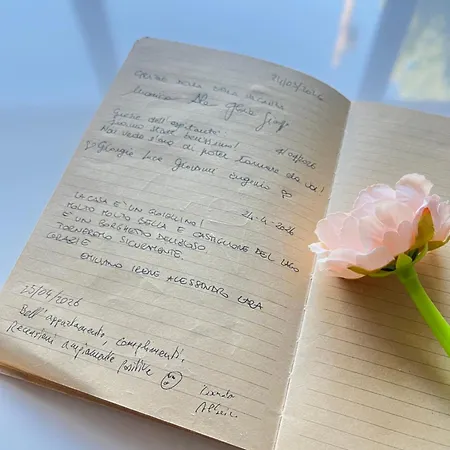 24/03/2026
Grazie
Grazie dell'ospitalità
Siamo stati benissimo!
Non vedo l'ora di poter tornare da voi!
Giorgia Luca Giovanni Eugenio
24-4-2026
LA CASA E' UN GIOIELLINO!
MOLTO MOLTO BELLA E CASTIGLIONE DEL LAGO
E' UN BORGHETTO DELIZIOSO.
TORNEREMO SICURAMENTE.
GRAZIE
EMILIANO IRENE ALESSANDRO LARA
25/04/2026
Bell'appartamento, complimenti.
Recensioni ampiamente positive